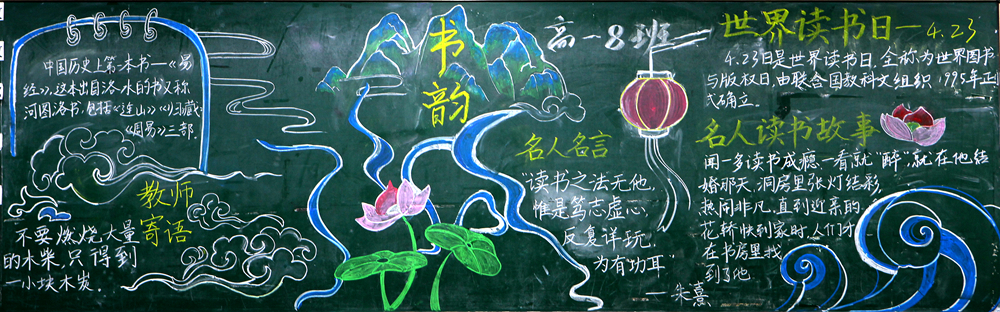 中国历史上第一本书—《易
经》,这本出自洛水的书又称
河图洛书,包括《连山》《归藏》
《周易》三部.
教师
寄语
不要燃烧大量
的木柴,只得到
一小块木炭.
书
韵
高一8班
名人名言
“读书之法无他,
惟是笃志虚心,
反复详玩,
为有功耳”
—朱熹
世界读书日—4.23
4.23日是世界读书日,全称为世界图书
与版权日,由联合国教科文组织1995年正
式确立.
名人读书故事
闻一多读书成瘾,一看就“醉”,就在他结
婚那天,洞房里张灯结彩,
热闹非凡,直到近亲的
花轿快到家时,人们才
在书房里找
到了他.